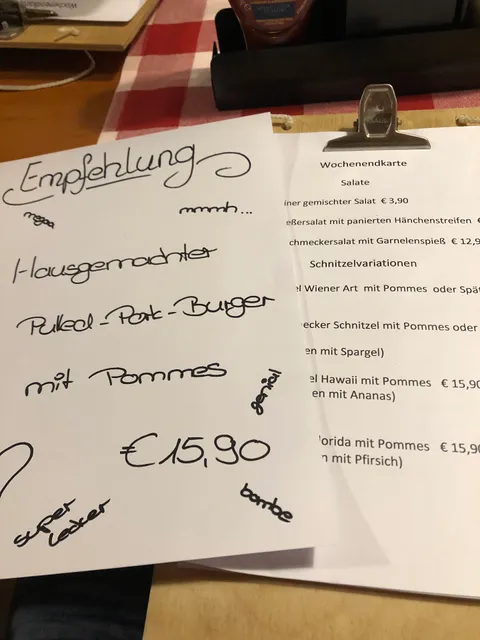 Empfehlung
mmmh...
Hausgemachter
Pulled-Pork-Burger
mit Pommes
genial
€15,90
super
lecker
bombe
Wochenendkarte
Salate
iner gemischter Salat € 3,90
eßersalat mit panierten Hänchenstreifen €
chmeckersalat mit Garnelenspieß € 12,9
Schnitzelvariationen
el Wiener Art mit Pommes oder Spät
ecker Schnitzel mit Pommes oder
en mit Spargel)
el Hawaii mit Pommes € 15,90
en mit Ananas)
lorida mit Pommes € 15,90
n mit Pfirsich)